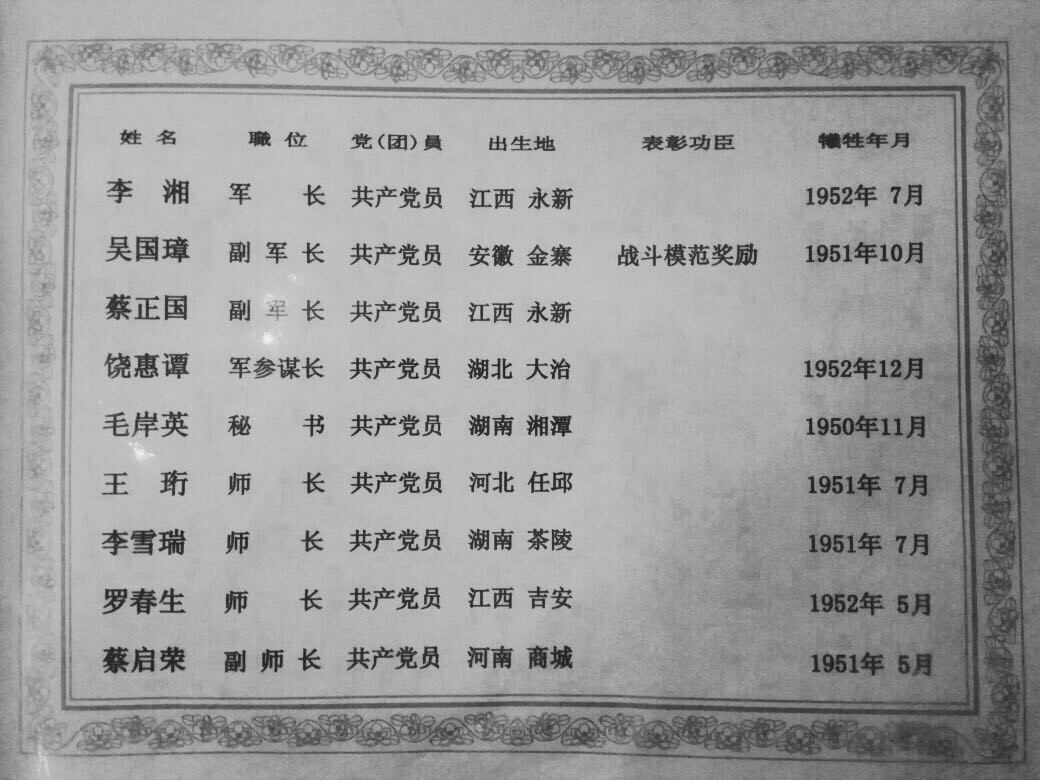 姓名 職位 党(团)員 出生地 表彰功臣 犧牲年月
李湘 军长 共产党员 江西 永新 1952年 7月
吴国璋 副军长 共产党员 安徽 金寨 战斗模范奖励 1951年10月
蔡正国 副军长 共产党员 江西 永新
饶惠谭 军参谋长 共产党员 湖北 大治 1952年12月
毛岸英 秘书 共产党员 湖南 湘潭 1950年11月
王珩 师长 共产党员 河北 任邱 1951年 7月
李雪瑞 师长 共产党员 湖南 茶陵 1951年 7月
罗春生 师长 共产党员 江西 吉安 1952年 5月
蔡启荣 副师长 共产党员 河南 商城 1951年 5月